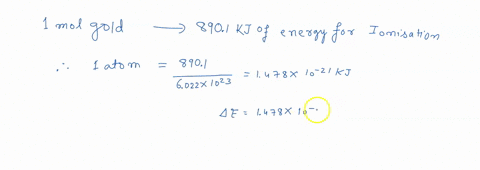 1 mol gold ⟶ 890.1 KJ of energy for Ionisation
∴ 1 atom = 890.1 / 6.022 × 10²³ = 1.478 × 10⁻²¹ KJ
ΔE = 1.478 × 10⁻